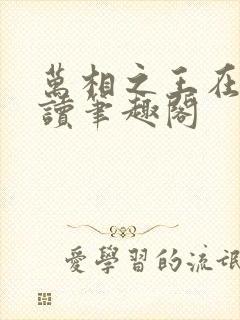 萬相之王在
讀筆趣閣
愛學習的流氓